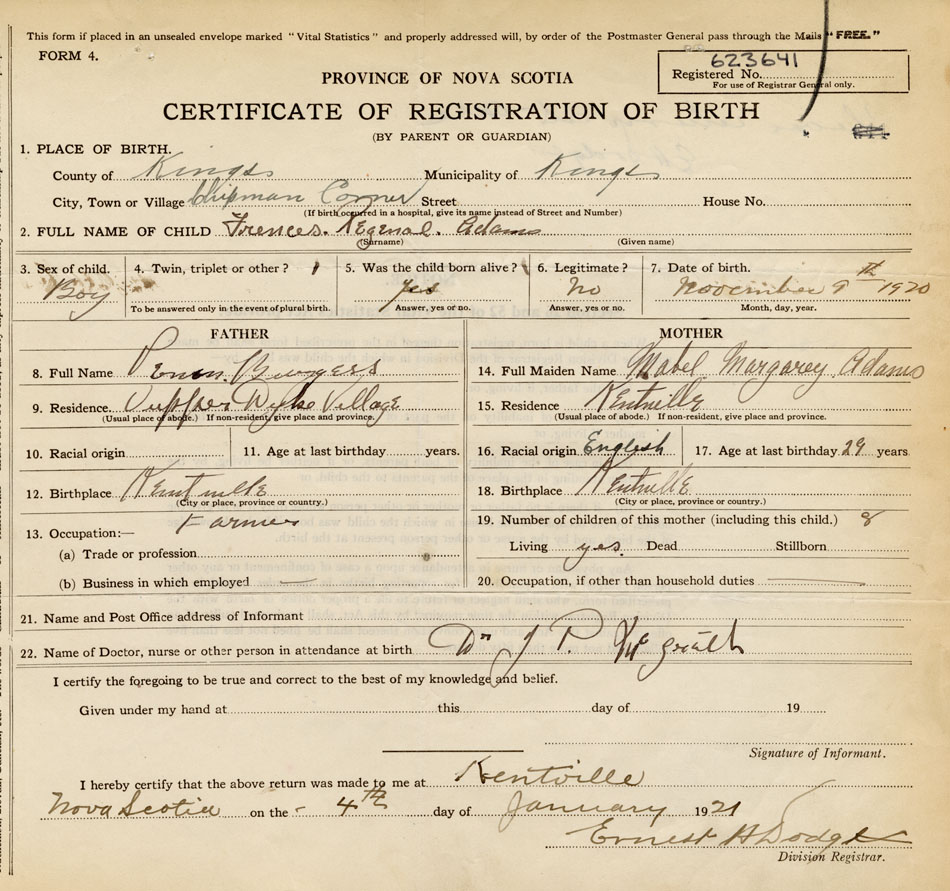 This form if placed in an unsealed envelope marked "Vital Statistics" and properly addressed will, by order of the Postmaster General pass through the Mails "FREE."
FORM 4.
623641
Registered No.
For use of Registrar General only.
PROVINCE OF NOVA SCOTIA
CERTIFICATE OF REGISTRATION OF BIRTH
(BY PARENT OR GUARDIAN)
1. PLACE OF BIRTH.
County of Kings Municipality of Kings
City, Town or Village Chipman Corner Street House No.
(If birth occurred in a hospital, give its name instead of Street and Number)
2. FULL NAME OF CHILD Frences. Regenal. Adams
(Surname) (Given name)
3. Sex of child. 4. Twin, triplet or other? 5. Was the child born alive? 6. Legitimate? 7. Date of birth.
Boy yes No November 9th 1920
To be answered only in the event of plural birth. Answer, yes or no. Answer, yes or no. Month, day, year.
FATHER
8. Full Name
9. Residence Village
(Usual place of abode.) If non-resident, give place and province.
10. Racial origin 11. Age at last birthday years.
12. Birthplace Kentville
(City or place, province or country.)
Farmer
13. Occupation:—
(a) Trade or profession
(b) Business in which employed —
MOTHER
14. Full Maiden Name Mabel Margarey Adams
15. Residence Kentville
(Usual place of abode.) If non-resident, give place and province.
16. Racial origin English 17. Age at last birthday 29 years
18. Birthplace Kentville
(City or place, province or country.)
19. Number of children of this mother (including this child.) 8
Living yes. Dead Stillborn
20. Occupation, if other than household duties
21. Name and Post Office address of Informant
22. Name of Doctor, nurse or other person in attendance at birth Dr J P. McGrath
I certify the foregoing to be true and correct to the best of my knowledge and belief.
Given under my hand at this day of 19
Signature of Informant.
I hereby certify that the above return was made to me at Kentville
Nova Scotia on the - 4th day of January 1921
Ernest H Dodge
Division Registrar.